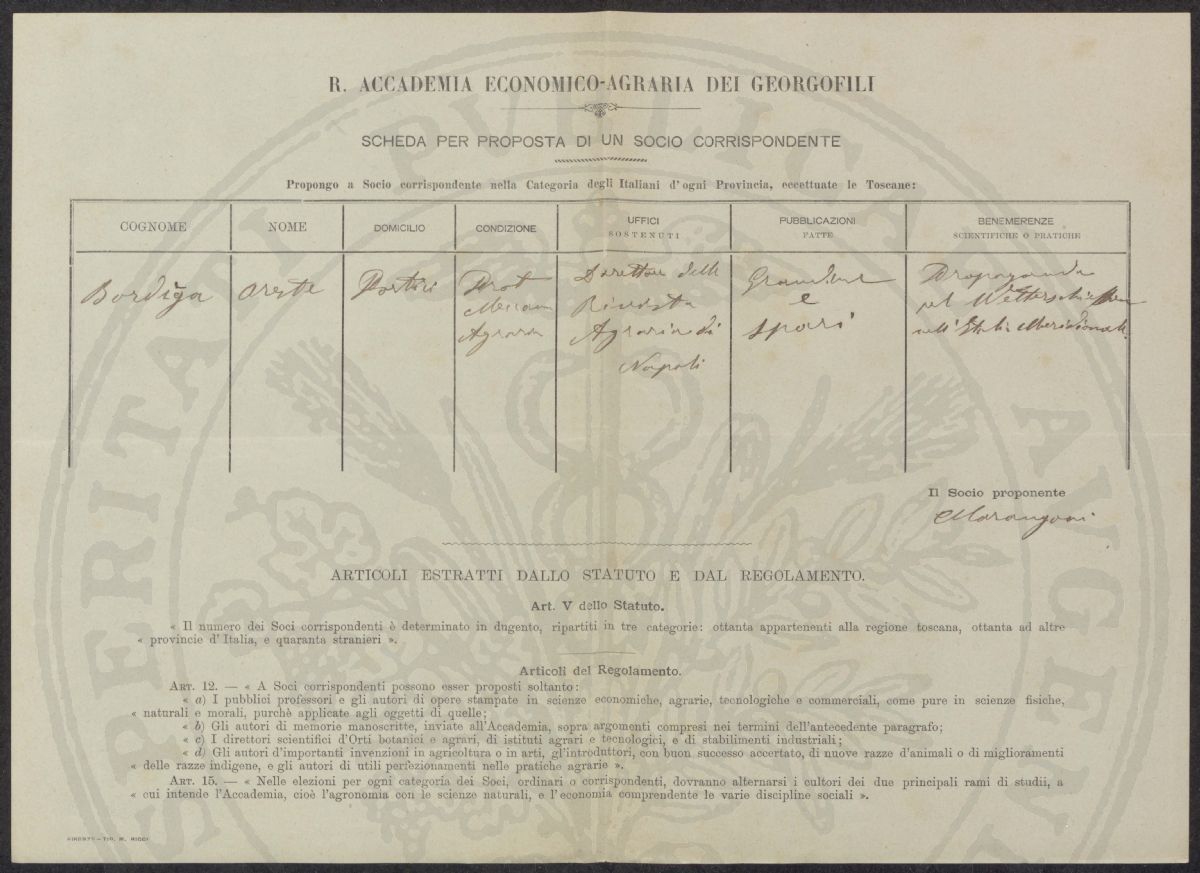 R. ACCADEMIA ECONOMICO-AGRARIA DEI GEORGOFILI
SCHEDA PER PROPOSTA DI UN SOCIO CORRISPONDENTE
Propongo a Socio corrispondente nella Categoria degli Italiani d'ogni Provincia, eccettuate le Toscane:
COGNOME
NOME
DOMICILIO
CONDIZIONE
UFFICI
SOSTENUTI
PUBBLICAZIONI
FATTE
BENEMERENZE
SCIENTIFICHE O PRATICHE
Bordiga
Oreste
Portici
Prof
Agraria
Direttore della
Rivista
Agraria di
Napoli
Grandine
e
spari
Propaganda
nell' Italia Meridionale.
Il Socio proponente
CMarangoni
ARTICOLI ESTRATTI DALLO STATUTO E DAL REGOLAMENTO.
Art. V dello Statuto.
« Il numero dei Soci corrispondenti è determinato in dugento, ripartiti in tre categorie: ottanta appartenenti alla regione toscana, ottanta ad altre
« provincie d'Italia, e quaranta stranieri ».
Articoli del Regolamento.
ART. 12. — « A Soci corrispondenti possono esser proposti soltanto:
« a) I pubblici professori e gli autori di opere stampate in scienze economiche, agrarie, tecnologiche e commerciali, come pure in scienze fisiche,
« naturali e morali, purchè applicate agli oggetti di quelle;
« b) Gli autori di memorie manoscritte, inviate all'Accademia, sopra argomenti compresi nei termini dell'antecedente paragrafo;
« c) I direttori scientifici d'Orti botanici e agrari, di istituti agrari e tecnologici, e di stabilimenti industriali;
« d) Gli autori d'importanti invenzioni in agricoltura o in arti, gl'introduttori, con buon successo accertato, di nuove razze d'animali o di miglioramenti
« delle razze indigene, e gli autori di utili perfezionamenti nelle pratiche agrarie ».
ART. 15. — « Nelle elezioni per ogni categoria dei Soci, ordinari o corrispondenti, dovranno alternarsi i cultori dei due principali rami di studii, a
« cui intende l'Accademia, cioè l'agronomia con le scienze naturali, e l'economia comprendente le varie discipline sociali ».
FIRENZE - TIP. M. RICCI
PROSPERITATI PUBLICAE AUGENDAE